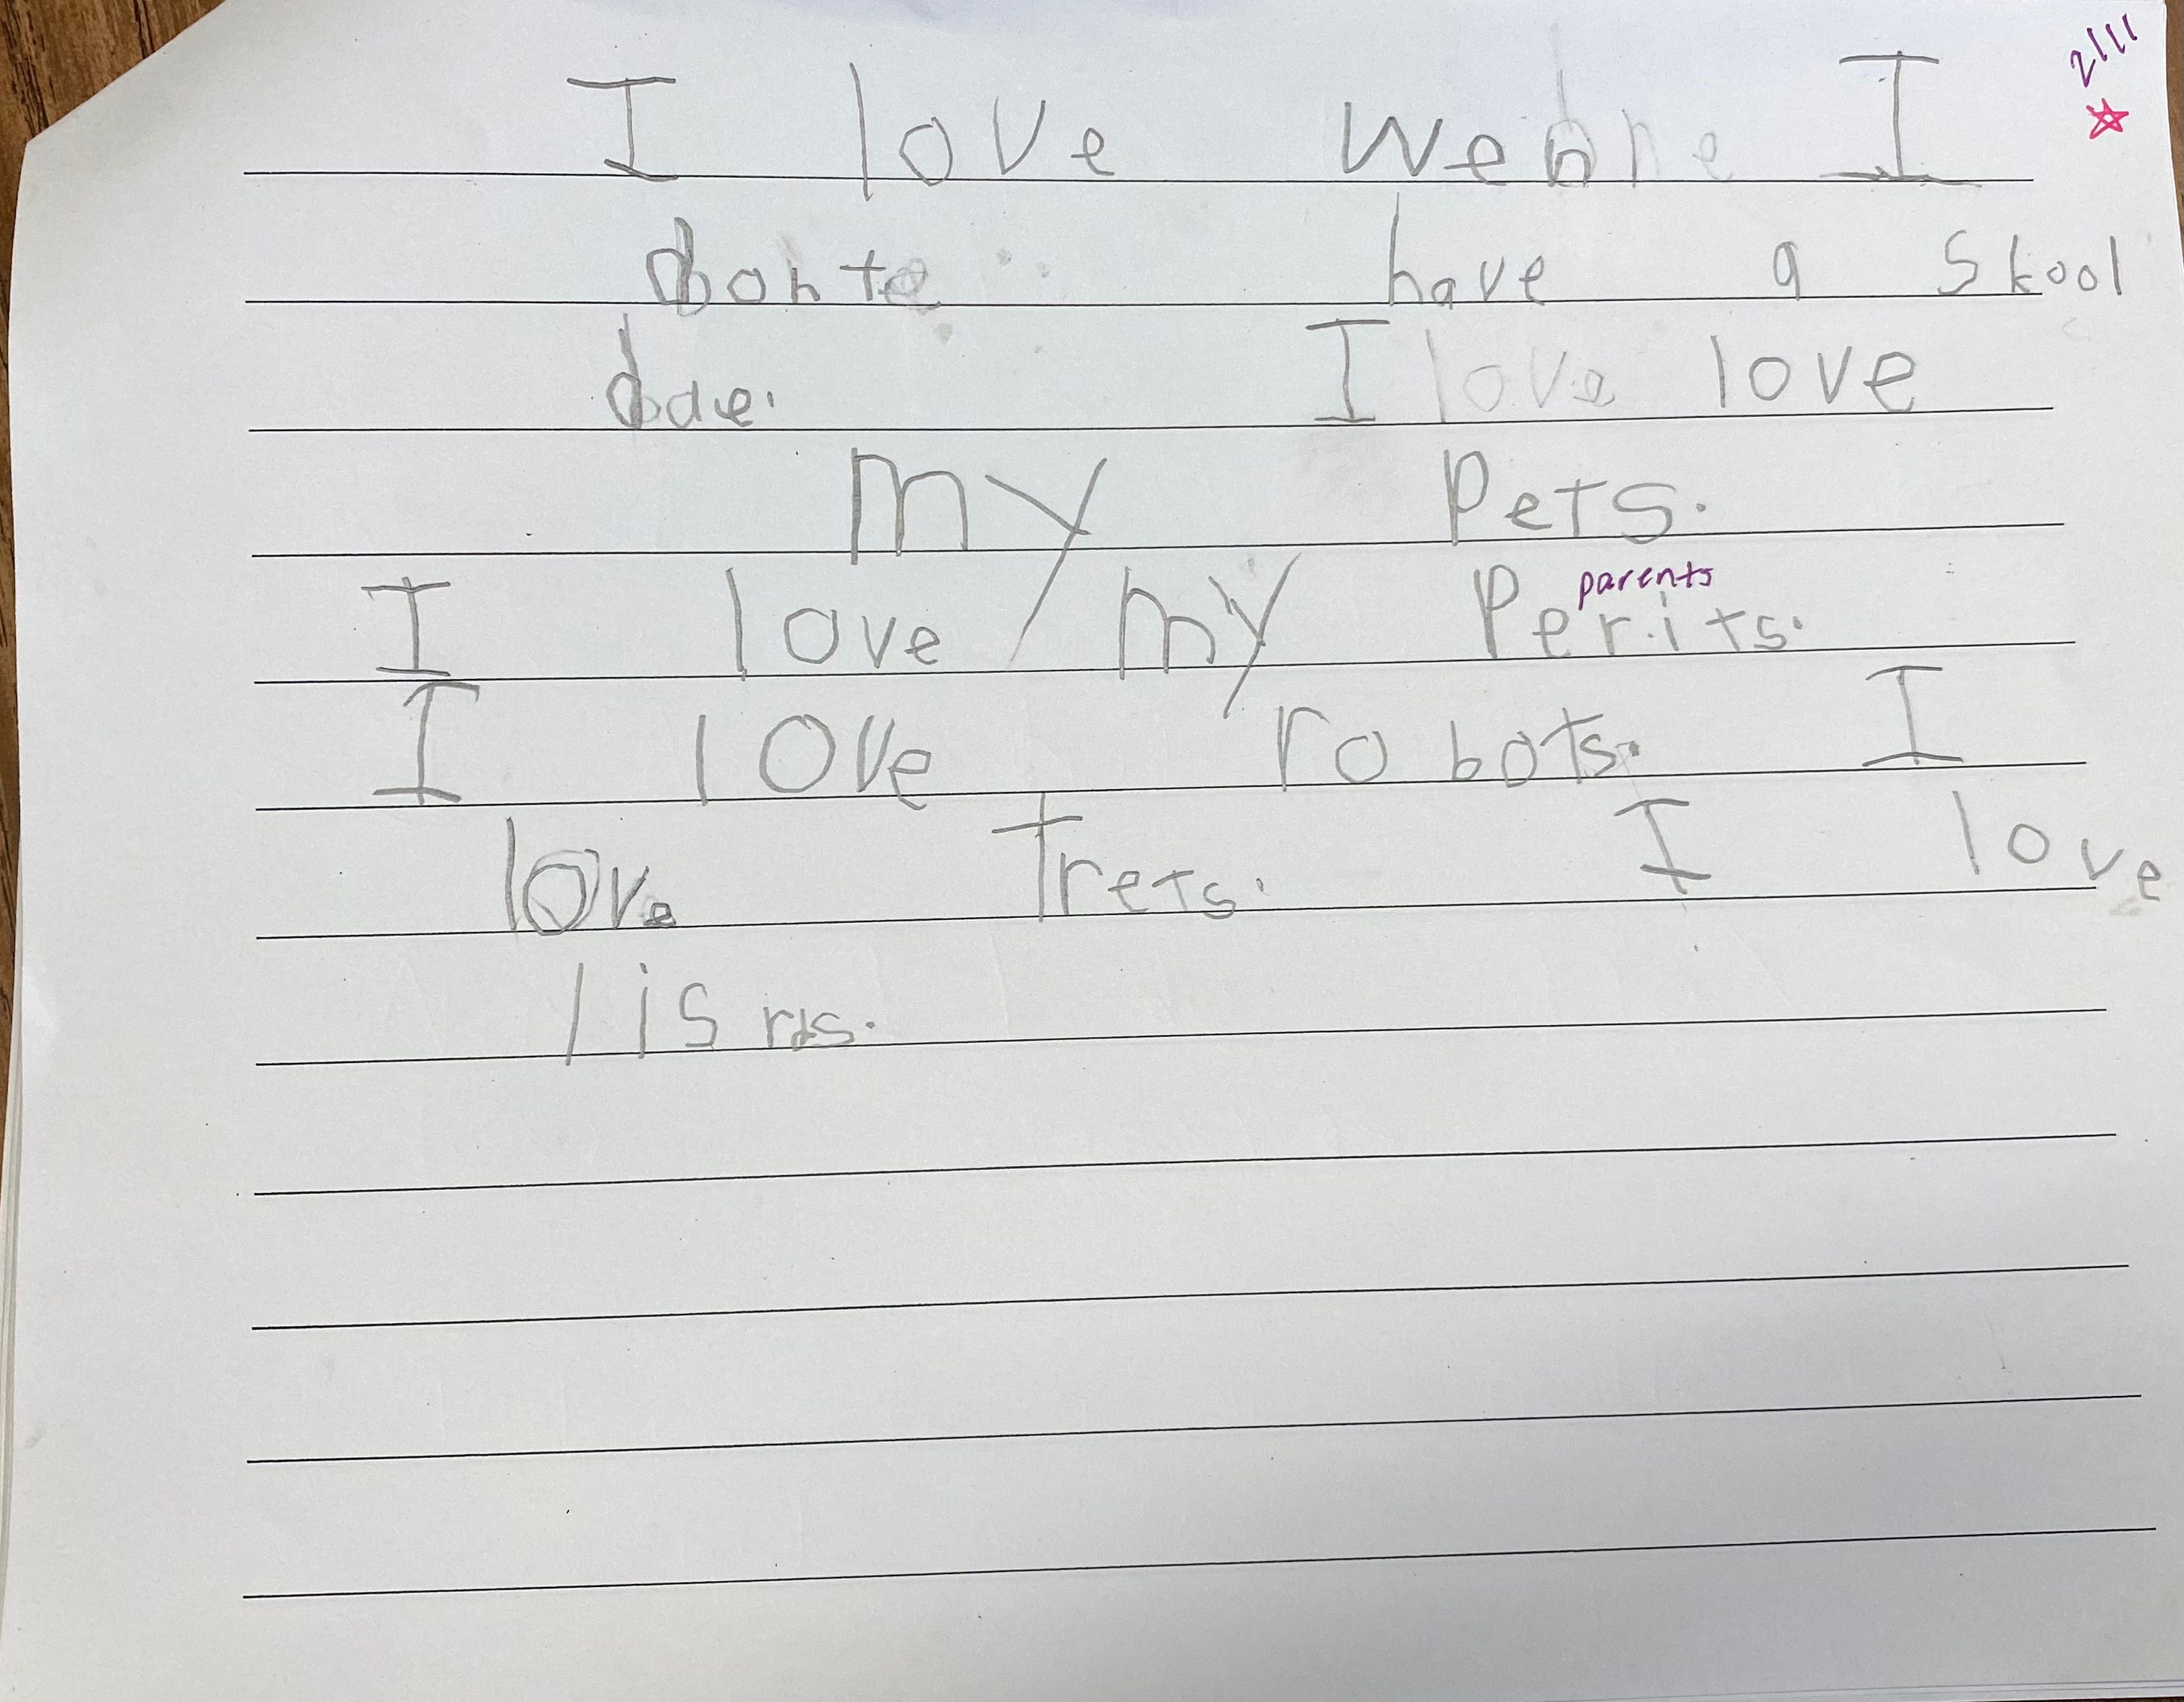 2/11
I love wen I
dont have a skool
dae. I love
my Pets.
parents
I love my Perits.
I love robots. I
love Trets. I love